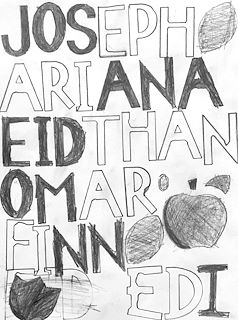 JOSEPH
ARIANA
EIDTHAN
OMAR
FINN
EDI